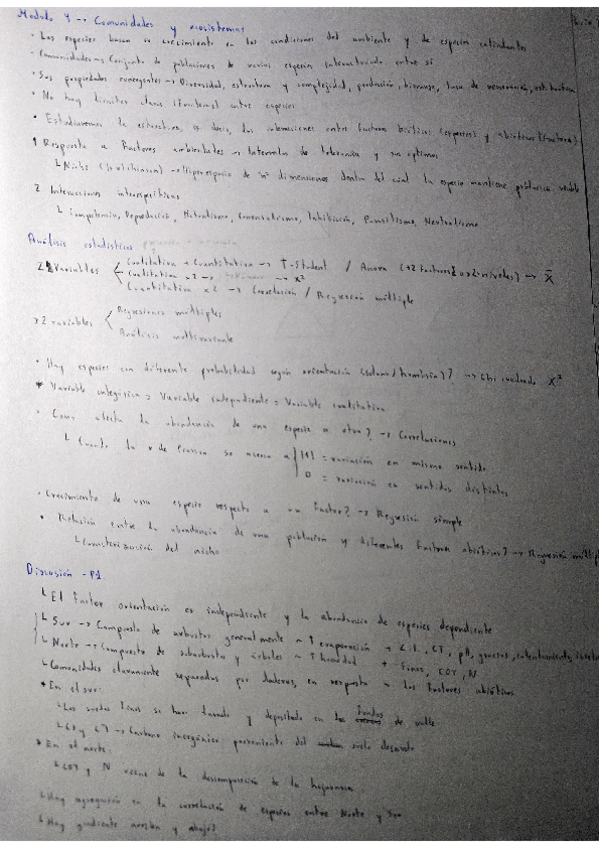 Modulo 4 → Comunidades y ecosistemas
· Las especies basan su crecimiento en las condiciones del ambiente y de especies colindantes
· Comunidades → Conjunto de poblaciones de varias especies interactuando entre sí
· Sus propiedades emergentes → Diversidad, estructura y complejidad, producción, biomasa, tasa de renovación, estabilidad
· No hay límites claros (fronteras) entre especies
· Estudiaremos la estructura, es decir, las interacciones entre factores bióticos (especies) y abióticos (factores)
1 Respuesta a factores ambientales → Intervalos de tolerancia y sus óptimos
└ Nicho (Hutchinson) → Hiperespacio de "n" dimensiones dentro del cual la especie mantiene población viable
2 Interacciones interespecíficas
└ Competencia, Depredación, Mutualismo, Comensalismo, Inhibición, Parasitismo, Neutralismo
Análisis estadísticos
2 Variables
Cualitativa + Cuantitativa → T-Student / Anova (+2 factores o >2 niveles) → X̄
Cualitativa x2 → → X²
Cuantitativa x2 → Correlación / Regresión múltiple
>2 variables
Regresiones múltiples
Análisis multivariante
· Hay especies con diferente probabilidad según orientación (solana/umbría)? → Chi cuadrado X²
* Variable categórica = Variable independiente = Variable cualitativa
· Como afecta la abundancia de una especie a otra? → Correlaciones
└ Cuando la r de Pearson se acerca a
|1| = variación en mismo sentido
0 = variación en sentidos distintos
· Crecimiento de una especie respecto a un factor? → Regresión simple
· Relación entre la abundancia de una población y diferentes factores abióticos? → Regresión múltiple
└ Caracterización del nicho
Discusión - P1.
└ El factor orientación es independiente y la abundancia de especies dependiente
└ Sur → Compuesto de arbustos generalmente ~ ↑ evaporación + C.I., CT, pH, gruesos, calentamiento,
└ Norte → Compuesto de subarbustos y árboles ~ ↑ humedad + Finos, COT, N
└ Comunidades claramente separadas por laderas, en respuesta a los factores abióticos
* En el sur:
└ Los suelos finos se han lavado y depositado en los fondos de valle
└ CI y CT → Carbono inorgánico proveniente del suelo desnudo
* En el norte:
└ COT y N viene de la descomposición de la hojarasca
└ Hay agregación en la correlación de especies entre Norte y Sur
└ Hay gradiente arriba y abajo?